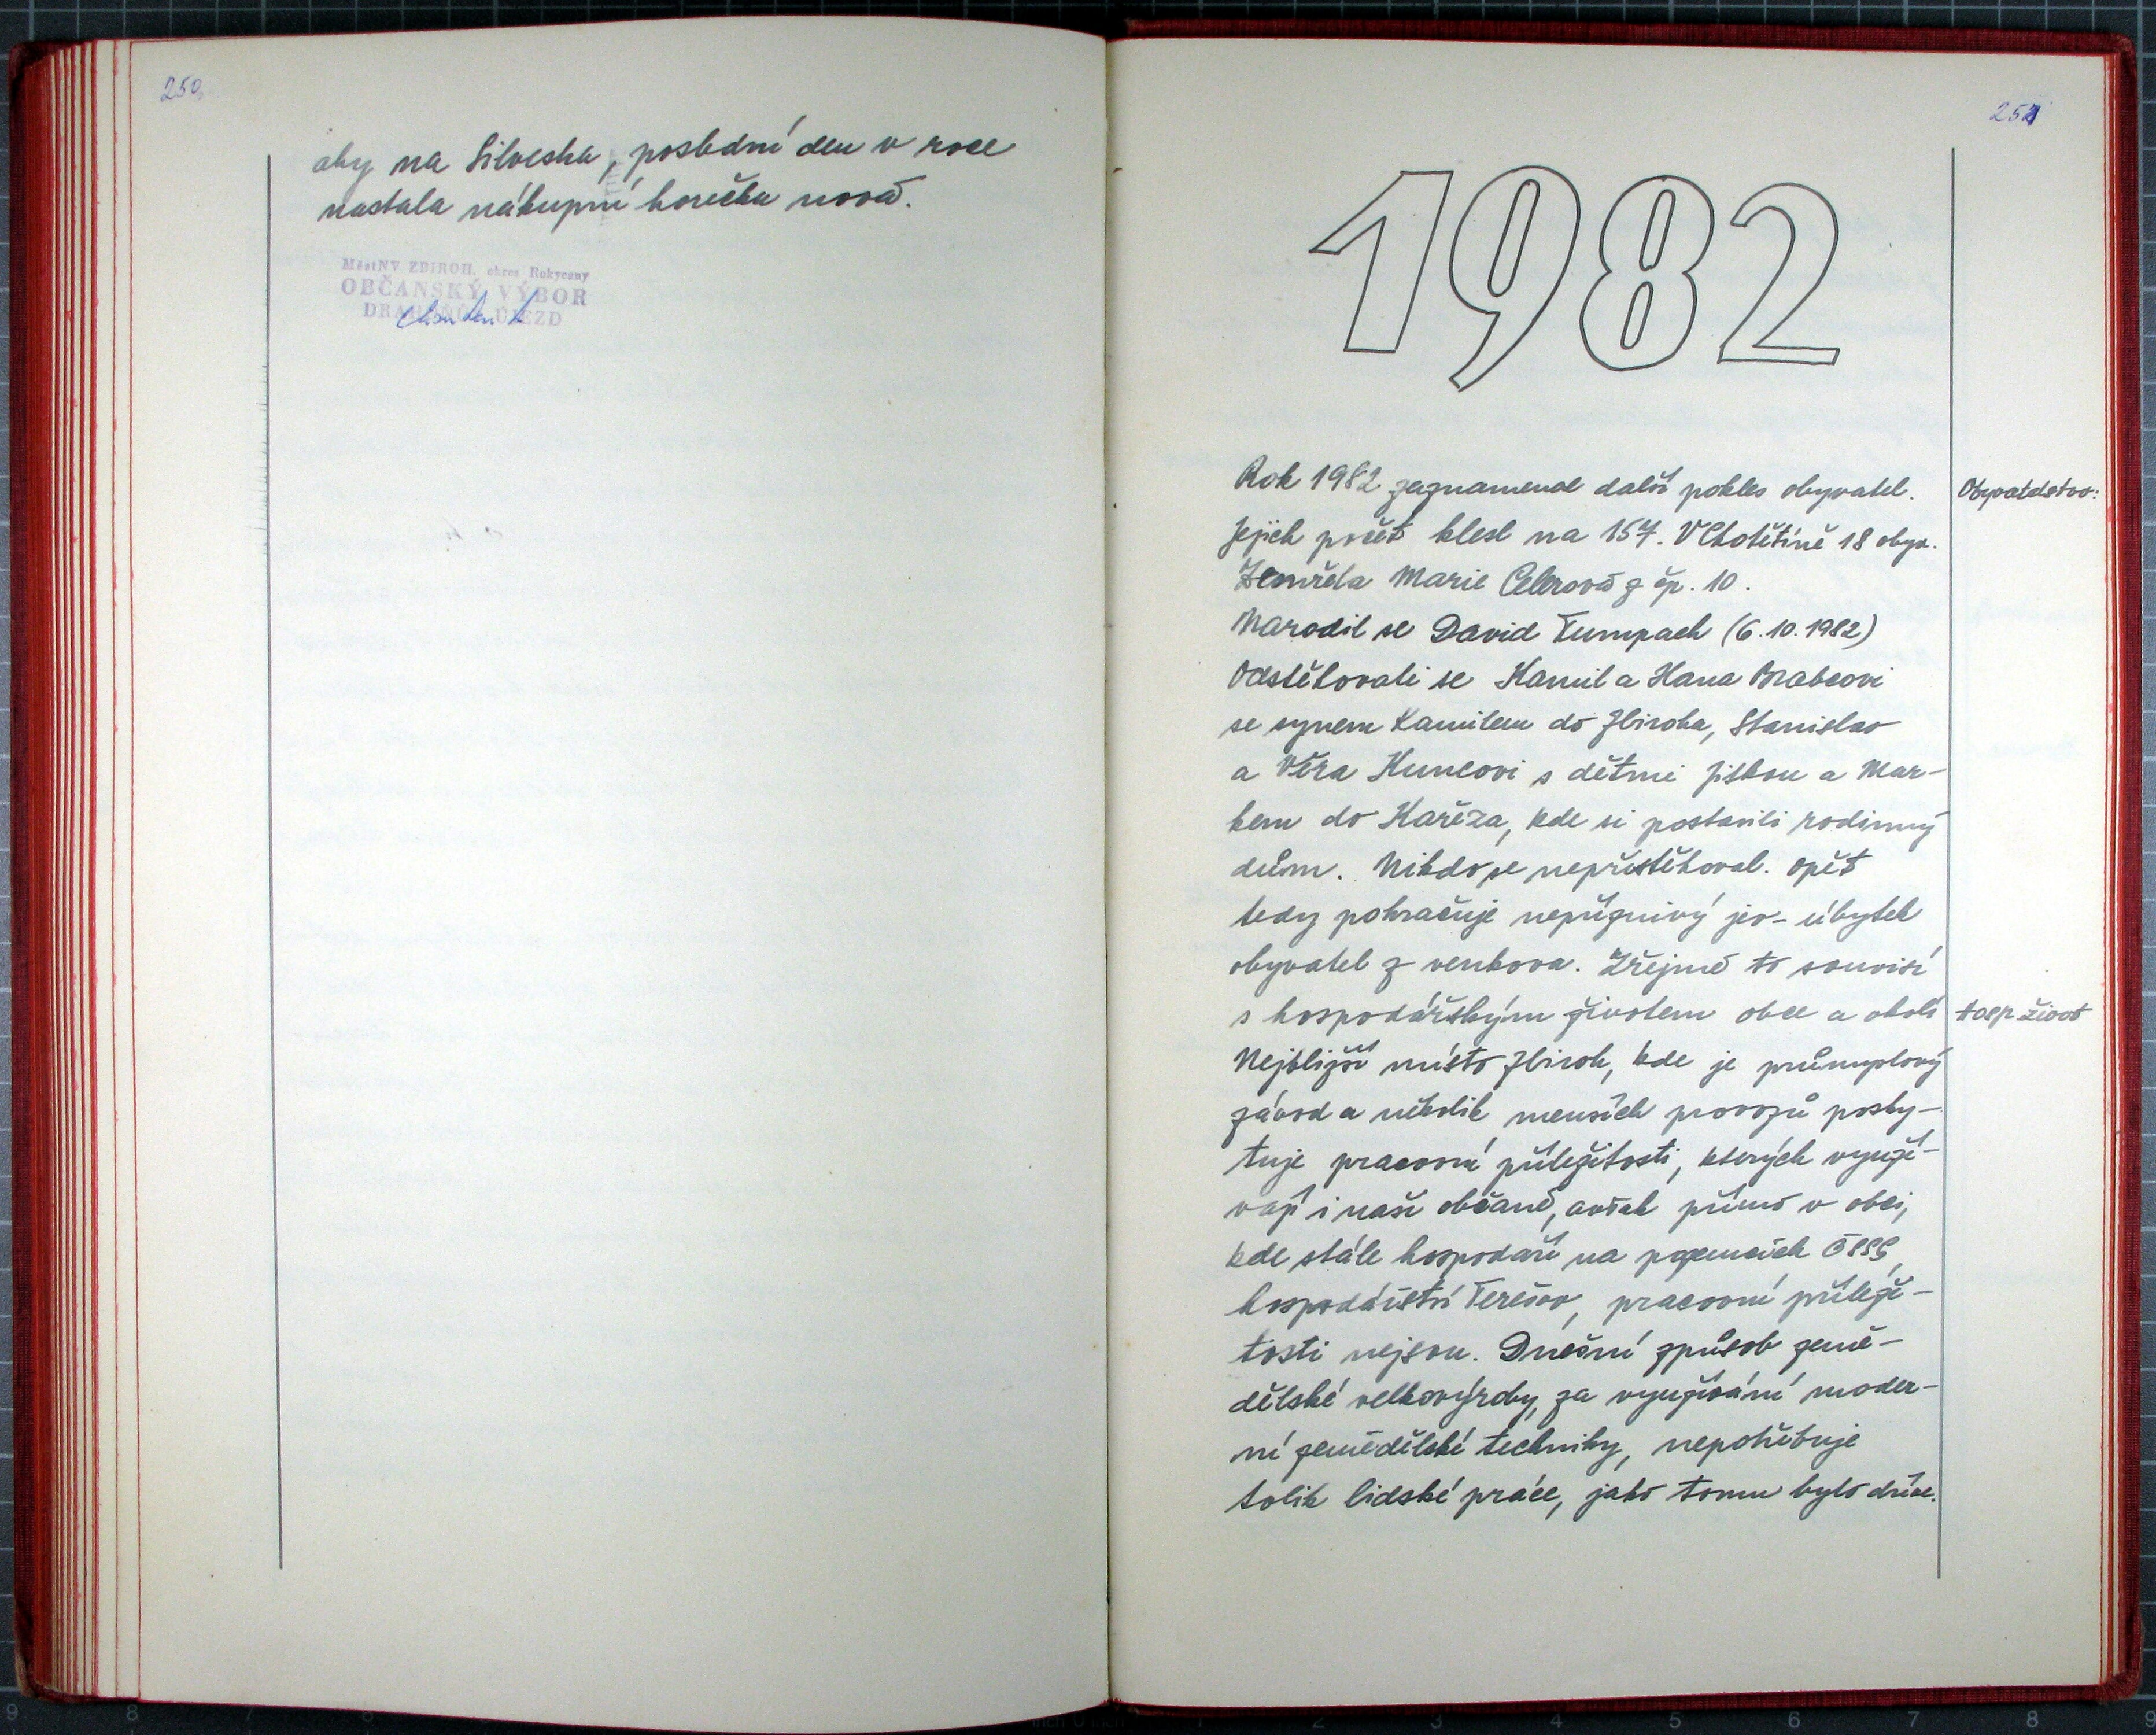 250
aby na Silvestra, poslední den v roce
nastala nákupní horečka nová.
MěstNV ZBIROH, okres Rokycany
OBČANSKÝ VÝBOR
DRAHOŇŮV ÚJEZD
251
1982
Rok 1982 zaznamenal další pokles obyvatel.
Obyvatelstvo:
Jejich počet klesl na 157. V Chotětíně 18 obyv.
Zemřela Marie Celerová z čp. 10.
Narodil se David Tumpach (6.10.1982)
Odstěhovali se Kamil a Hana Brabcovi
se synem Kamilem do Zbiroha, Stanislav
a Věra Kuncovi s dětmi Jitkou a Mar-
kem do Kařeza, kde si postavili rodinný
dům. Nikdo se nepřistěhoval. Opět
tedy pokračuje nepříznivý jev - úbytek
obyvatel z venkova. Zřejmě to souvisí
s hospodářským životem obce a okolí
Hosp. život
Nejbližší místo Zbiroh, kde je průmyslový
závod a několik menších provozů posky-
tuje pracovní příležitosti, kterých využí-
vají i naši občané, avšak přímo v obci,
kde stále hospodaří na pozemcích ČSSS,
hospodářství Terešov, pracovní příleži-
tosti nejsou. Dnešní způsob země-
dělské velkovýroby, za využívání moder-
ní zemědělské techniky, nepotřebuje
tolik lidské práce, jako tomu bylo dříve.